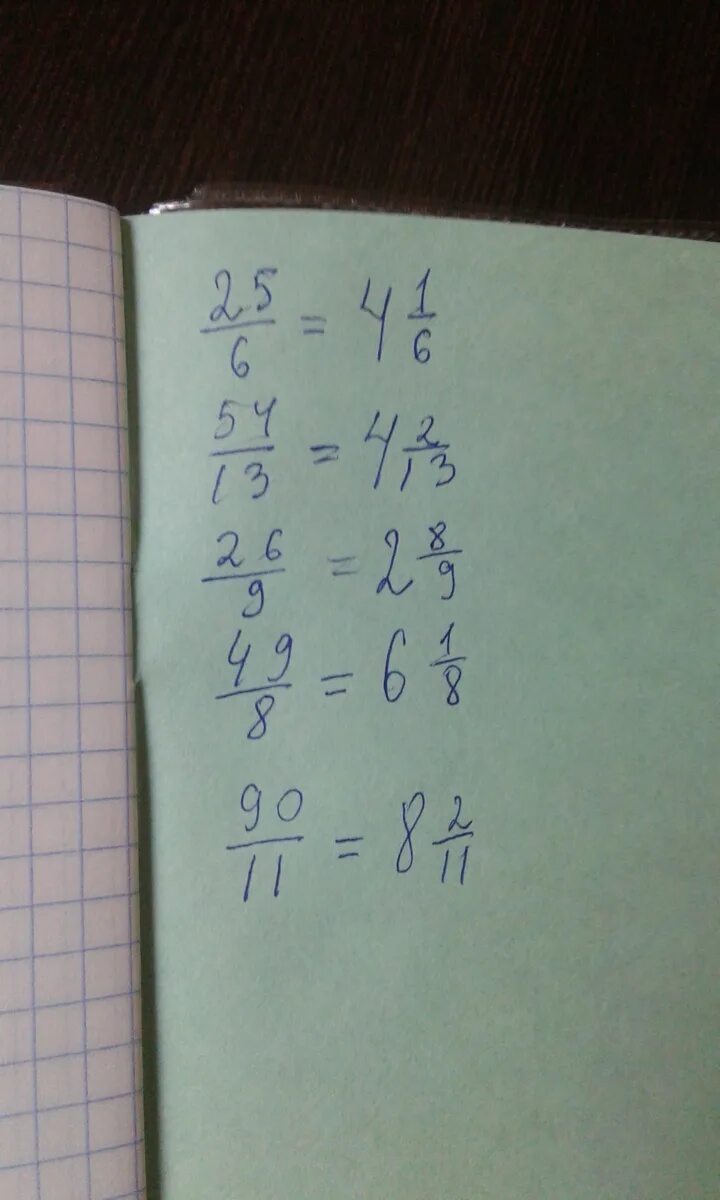 25/6 = 4 1/6
54/13 = 4 2/13
26/9 = 2 8/9
49/8 = 6 1/8
90/11 = 8 2/11